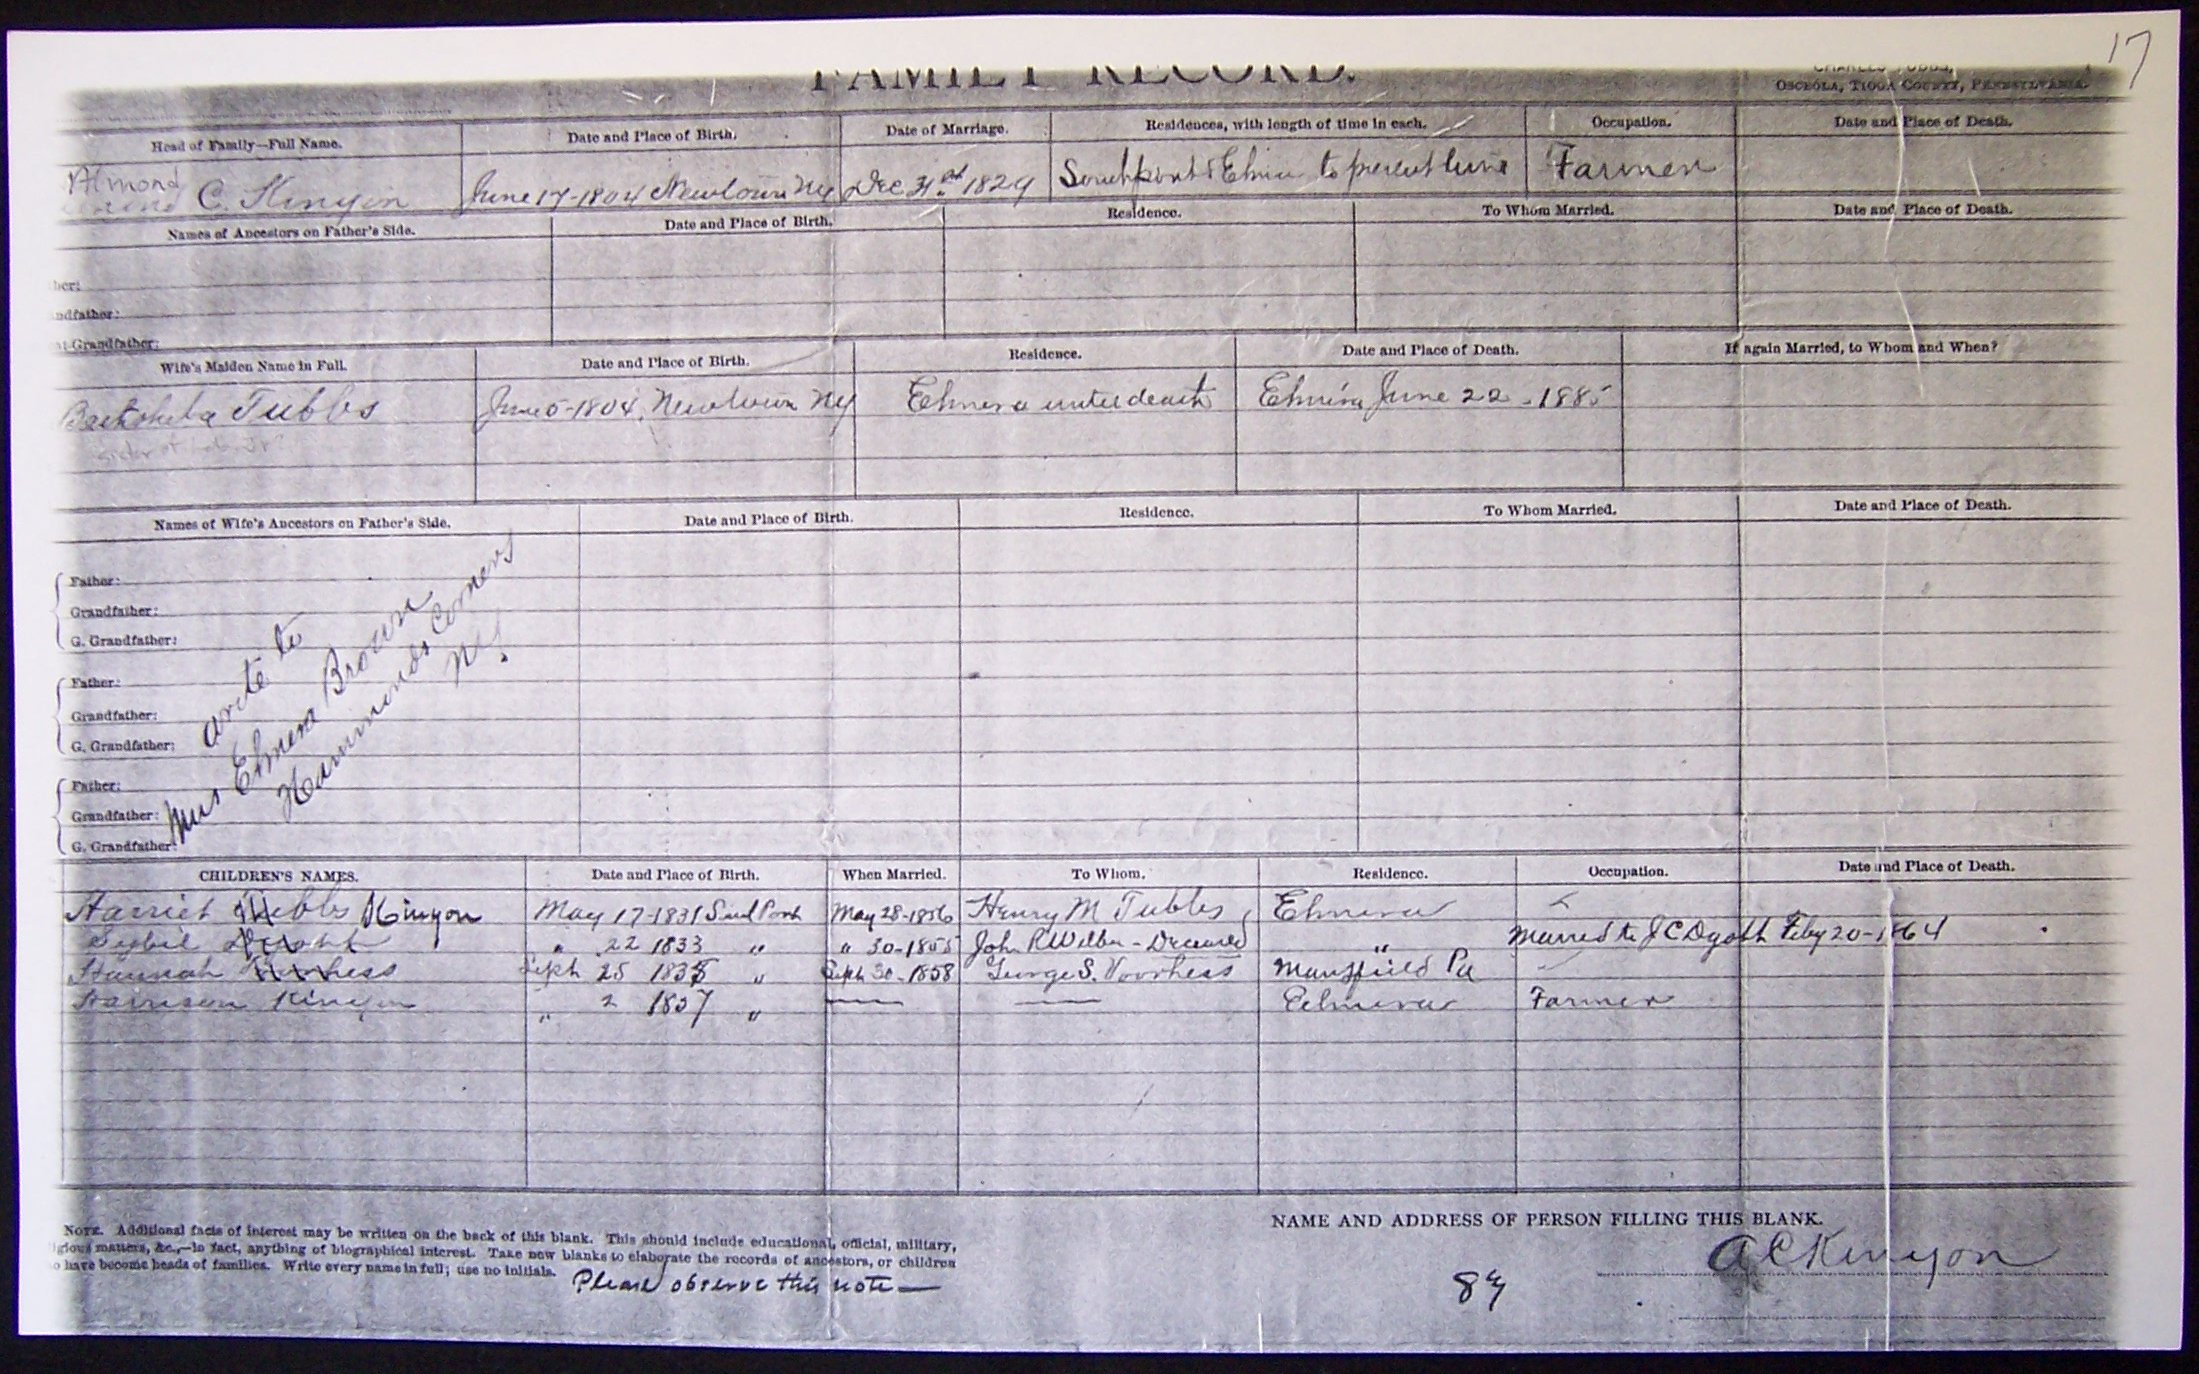 17
FAMILY RECORD.
CHARLES TUBBS,
OSCEOLA, TIOGA COUNTY, PENNSYLVANIA.
Head of Family—Full Name. Date and Place of Birth. Date of Marriage. Residences, with length of time in each. Occupation. Date and Place of Death.
Almond
C. Kinyon June 17-1804 Newtown NY Dec 31st 1829 Southport & Elmira to present time Farmer
Names of Ancestors on Father's Side. Date and Place of Birth. Residence. To Whom Married. Date and Place of Death.
her:
ndfather:
at Grandfather:
Wife's Maiden Name in Full. Date and Place of Birth. Residence. Date and Place of Death. If again Married, to Whom and When?
Bathsheba Tubbs June 5-1804, Newtown NY Elmira until death Elmira June 22-1885
sister of
Names of Wife's Ancestors on Father's Side. Date and Place of Birth. Residence. To Whom Married. Date and Place of Death.
Father:
Grandfather:
G. Grandfather:
Father:
Grandfather:
G. Grandfather:
Father:
Grandfather:
G. Grandfather:
write to
Mrs Elmera Brown
Hammonds Corners
NY.
CHILDREN'S NAMES. Date and Place of Birth. When Married. To Whom. Residence. Occupation. Date and Place of Death.
Harriet Tubbs Kinyon May 17-1831 South Port May 28-1856 Henry M Tubbs Elmira
Sybil " 22 1833 " " 30-1855 John R Wilber - Deceased " Married to J C Dygott Feby 20-1864
Hannah Voorhess Sept 25 1835 " Sept 30-1858 George S. Voorhess Mansfield Pa
Harrison Kinyon " 2 1837 " — — Elmira Farmer
NOTE. Additional facts of interest may be written on the back of this blank. This should include educational, official, military,
igious matters, &c.,—in fact, anything of biographical interest. Take new blanks to elaborate the records of ancestors, or children
o have become heads of families. Write every name in full; use no initials. Please observe this note—
NAME AND ADDRESS OF PERSON FILLING THIS BLANK.
A C Kinyon